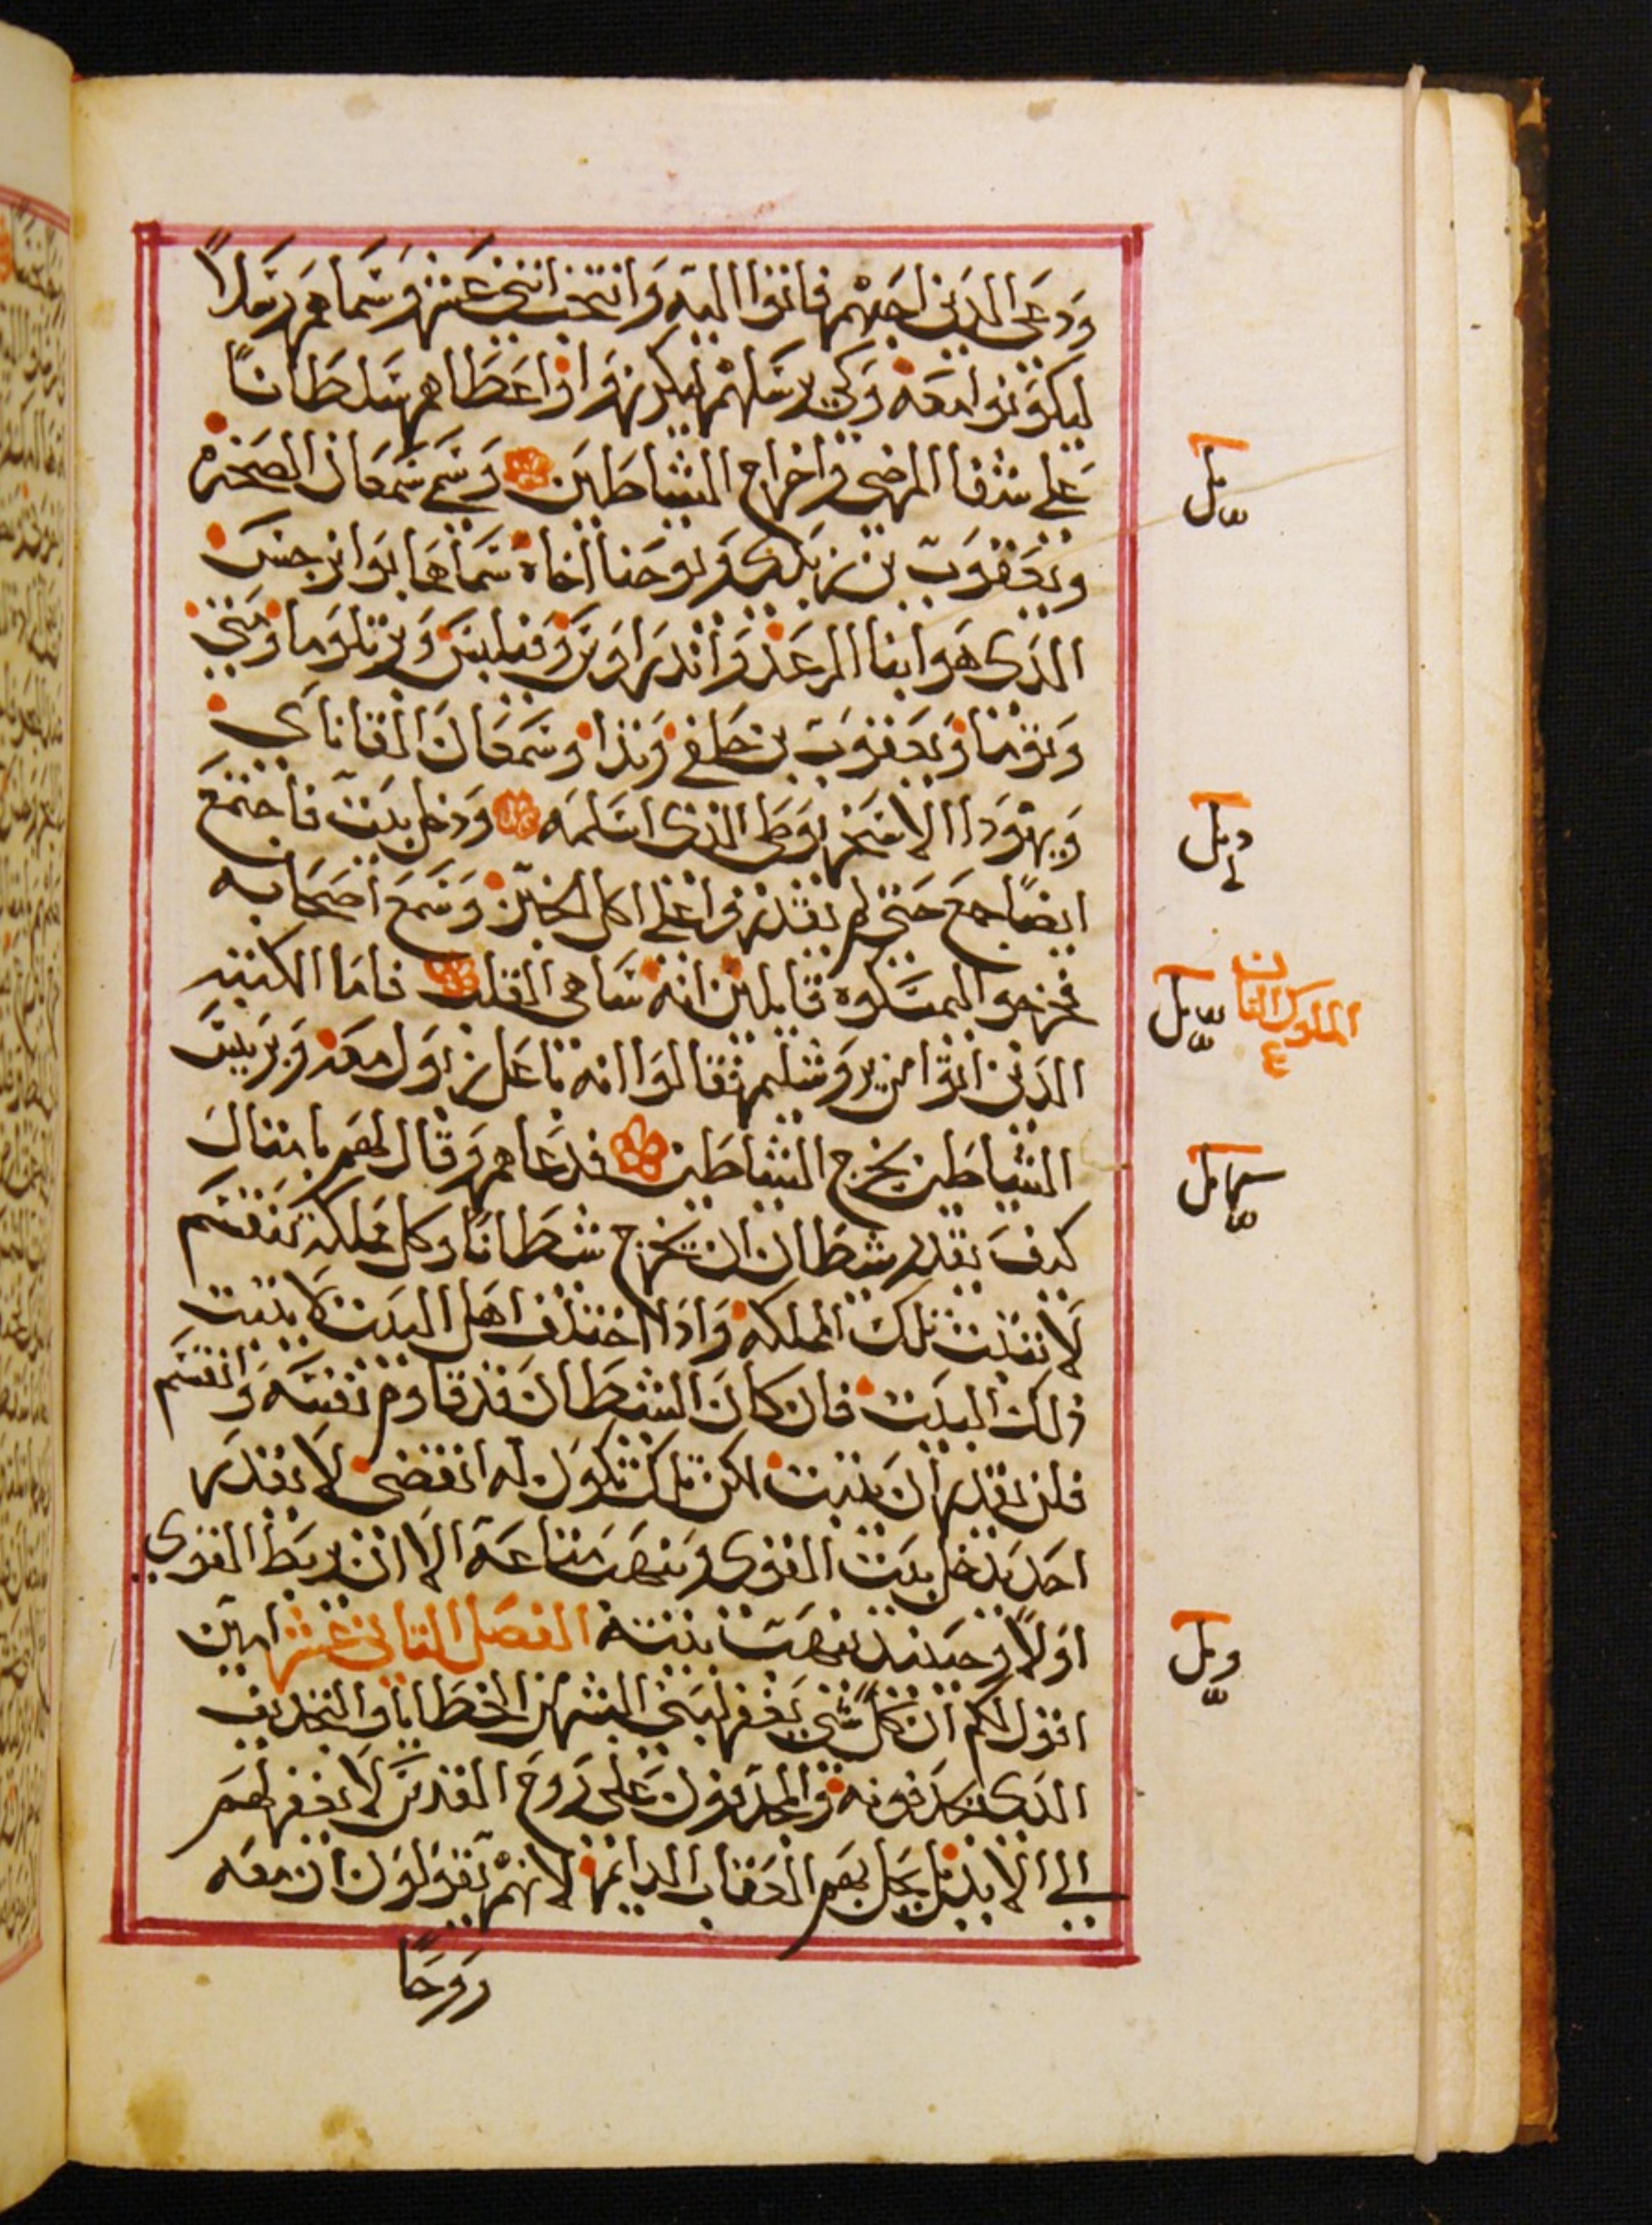 ودعى الدين احبهم فاتوا اليه وانتخب اتنى عشر وسماهم رسلاً
ليكونوا معه وكي يرسلهم ليكرزوا واعطاهم سلطاناً
على شفا المرضى واخراج الشياطين وسمى سمعان الصخره
ويعقوب بن زبدى ويوحنا اخاه سماهما بوانرجس
الدى هو ابنا الرعد واندراوس وفيلبس وبرتلوما ومتى
وتوما ويعقوب بن حلفى وتدا وسمعان القاناي
ويهودا الاسخريوطى الدى اسلمه ودخل بيت فاجتمع
ايضاً جمع حتى لم يقدروا على اكل الخبز وسمع اصحابه
فخرجوا ليمسكوه قايلين انه ساهى القلب فاما الكتبه
الدين اتوا من يروشليم فقالوا انه باعلزبول معه وبرييس
الشياطين يخرج الشياطين فدعاهم وقال لهم بامتال
كيف يقدر شيطان ان يخرج شيطانا وكل مملكه تنقسم
لا تتبت تلك المملكه وادا اختلف اهل البيت لا يتبت
دلك البيت فان كان الشيطان قد قاوم نفسه وانقسم
فلن يقدر ان يتبت لكن تلك تكون له انقضى لا يقدر
احد يدخل بيت القوى وينهب متاعه الا ان يربط القوي
اولاً وحينيد ينهب بيته الفصل التانى عشر امين
اقول لكم ان كل شى يغفر لبنى البشر من الخطايا والتجديف
الدى يجدفونه والمجدفون على روح القدس لا يغفر لهم
الى الابد بل يحل بهم العقاب الدايم لانهم يقولون ان معه
روحاً